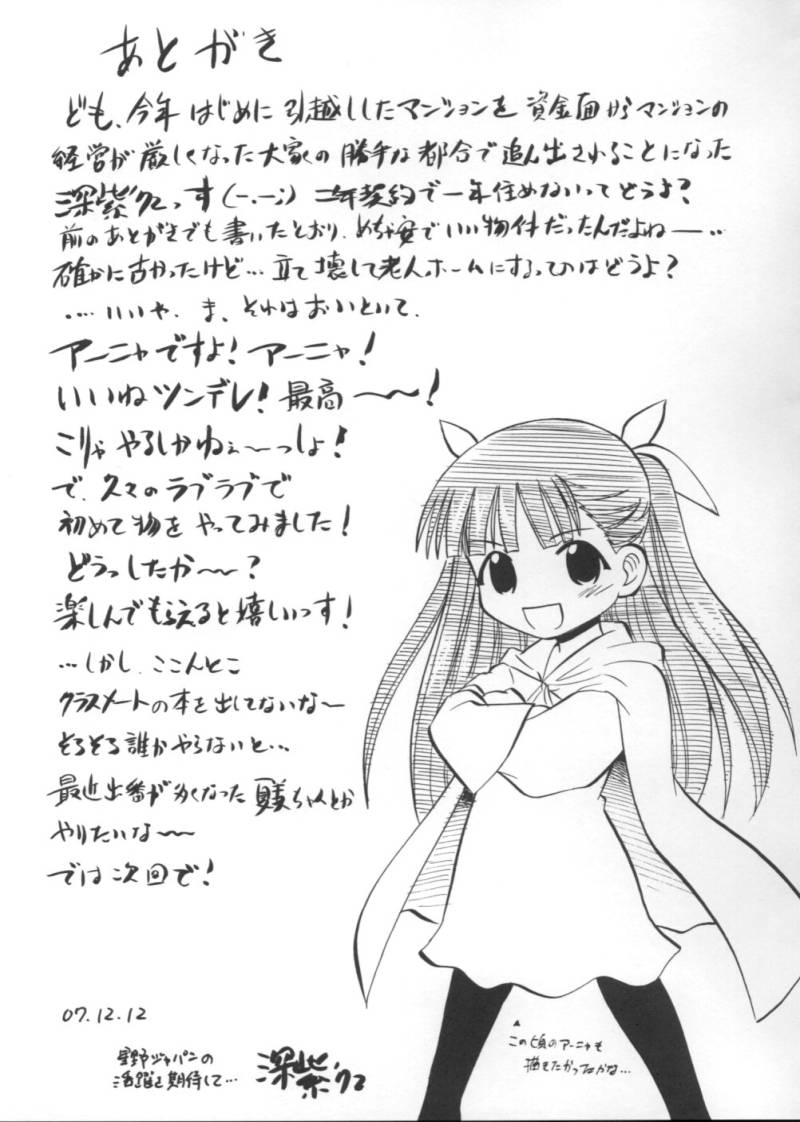 あとがき
ども、今年はじめに引越ししたマンションを資金面からマンションの
経営が厳しくなった大家の勝手な都合で追ん出されることになった
深紫'72っす(-.-;) 二年契約で一年住めないってどうよ?
前のあとがきでも書いたとおり、めちゃ安でいい物件だったんだよねー…
確かに古かったけど…立て壊して老人ホームにするってのはどうよ?
……いいや、ま、それはおいといて、
アーニャですよ!アーニャ!
いいねツンデレ!最高〜〜!
こりゃやるしかねぇ〜っしょ!
で、久々のラブラブで
初めて物をやってみました!
どうっしたか〜〜?
楽しんでもらえると嬉しいっす!
…しかし、ここんとこ
クラスメートの本を出してないな〜
そろそろ誰かやらないと…
最近出番が多くなった ちゃんとか
やりたいな〜〜
では次回で!
07.12.12
星野ジャパンの
活躍を期待して…
深紫'72
▲
この頃のアーニャも
描きたかったかな…